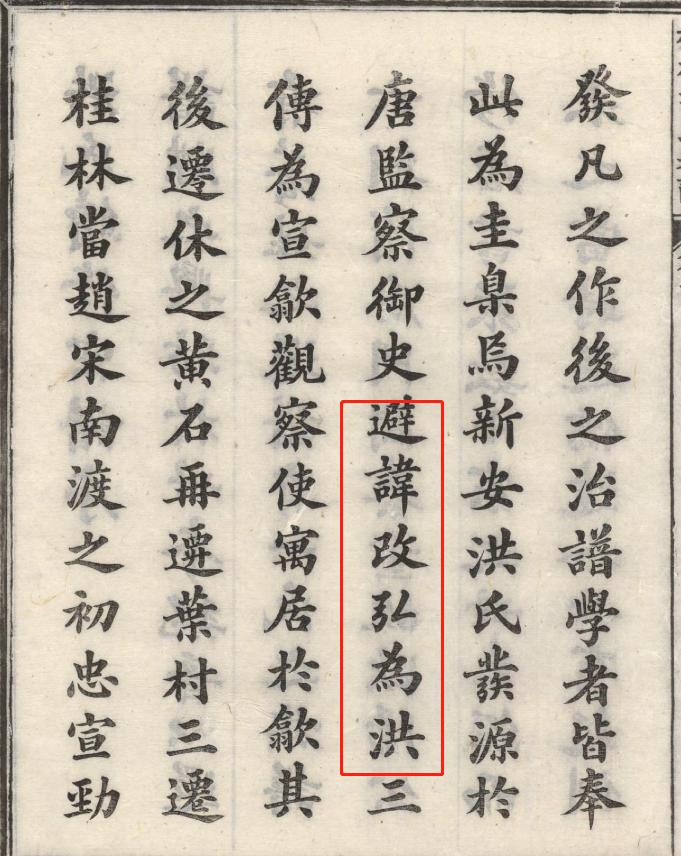 發凡之作後之治譜學者皆奉
此為圭臬焉新安洪氏發源於
唐監察御史避諱改弘為洪三
傳為宣歙觀察使寓居於歙其
後遷休之黃石再遷葉村三遷
桂林當趙宋南渡之初忠宣勁